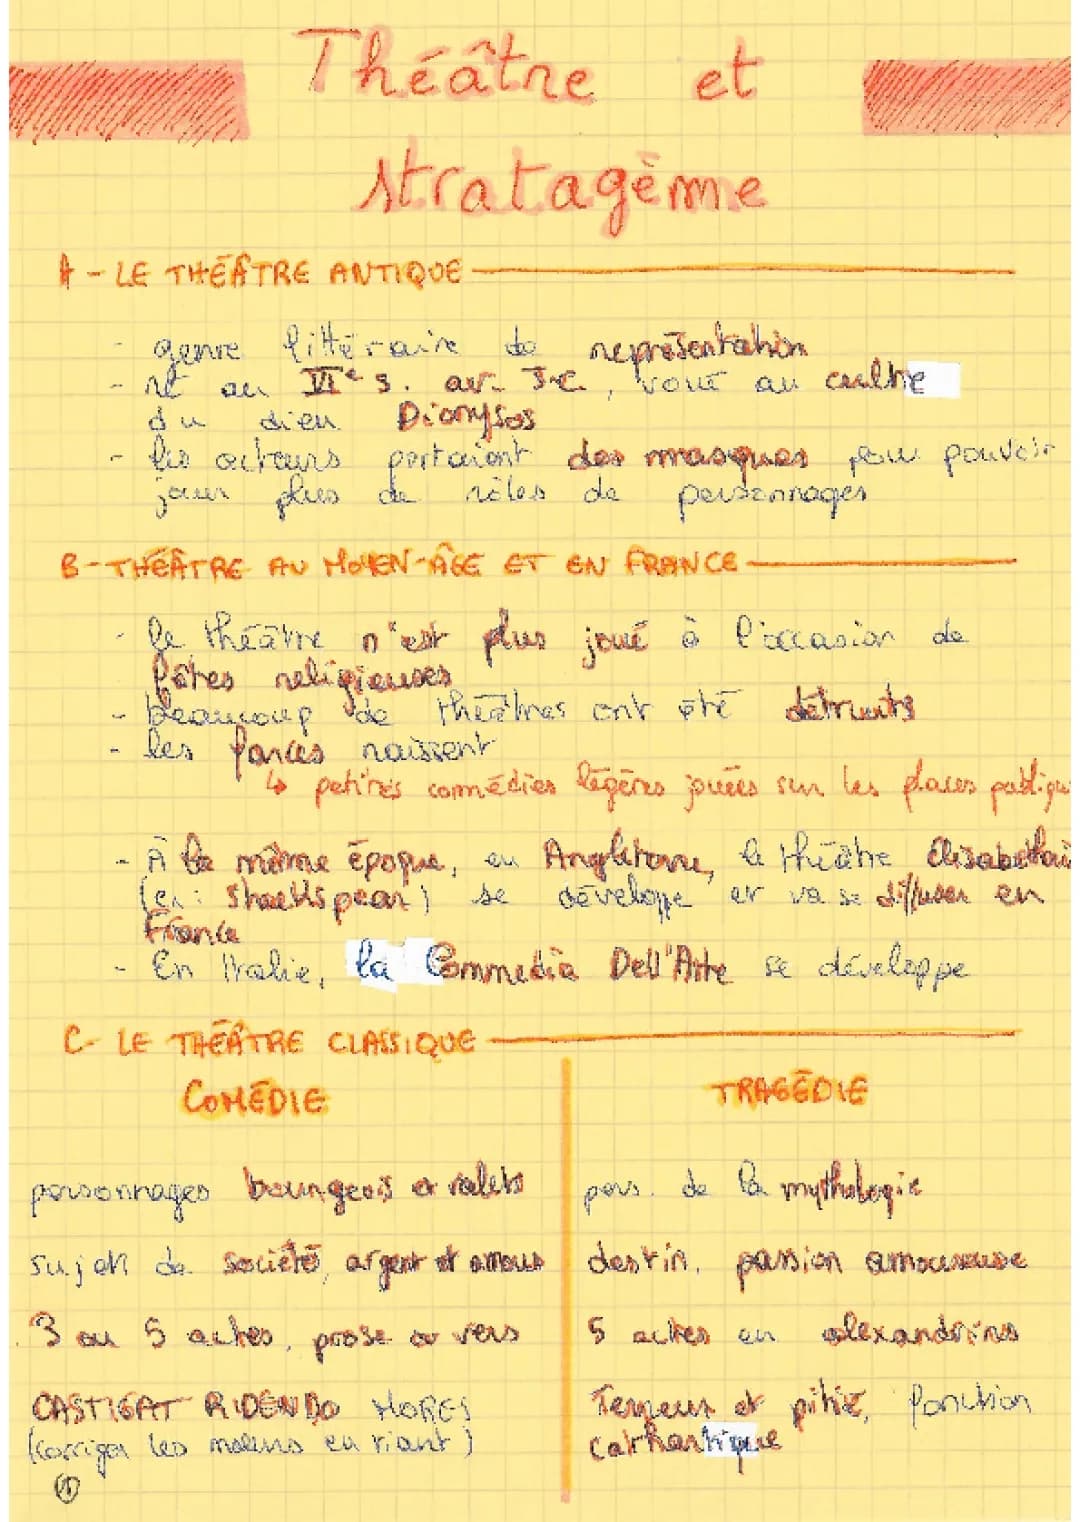 Théâtre et
stratagème
A - LE THÉÂTRE ANTIQUE
- genre littéraire de représentation
- né au VIe s. av. J-C, voué au culte
du dieu Dionysos
- les acteurs portaient des masques pour pouvoir
jouer plus de rôles de personnages
B - THÉÂTRE AU MOYEN-ÂGE ET EN FRANCE
- le théâtre n'est plus joué à l'occasion de
fêtes religieuses
- beaucoup de théâtres ont été détruits
- les farces naissent
↳ petites comédies légères jouées sur les places publiqu
- À la même époque, en Angleterre, le théâtre élisabéthai
(ex: Shaekspear) se développe et va se diffuser en
France
- En Italie, la Commedia Dell'Arte se développe
C - LE THÉÂTRE CLASSIQUE
COMÉDIE
personnages bourgeois et valets
sujet de société, argent et amour
3 ou 5 actes, prose ou vers
CASTIGAT RIDENDO MORES
(corriger les mœurs en riant)
①
TRAGÉDIE
pers. de la mythologie
destin, passion amoureuse
5 actes en alexandrins
Terreur et pitié, fonction
cathartique